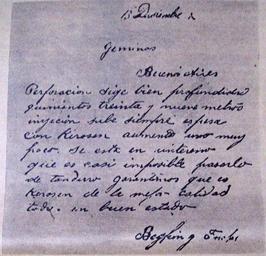 13 Diciembre
Geminas
Buenos Aires
Perforacion sige bien profundidad
quinientos treinta y nueve metros
injecion sale siempre espesa
con Kerosen aumento uno muy
poco se está en un terreno
que es casi imposible pasarlo
de tan duro garantimos que es
Kerosen de la mejor calidad
todo en buen estado
Beghin y Fuchs